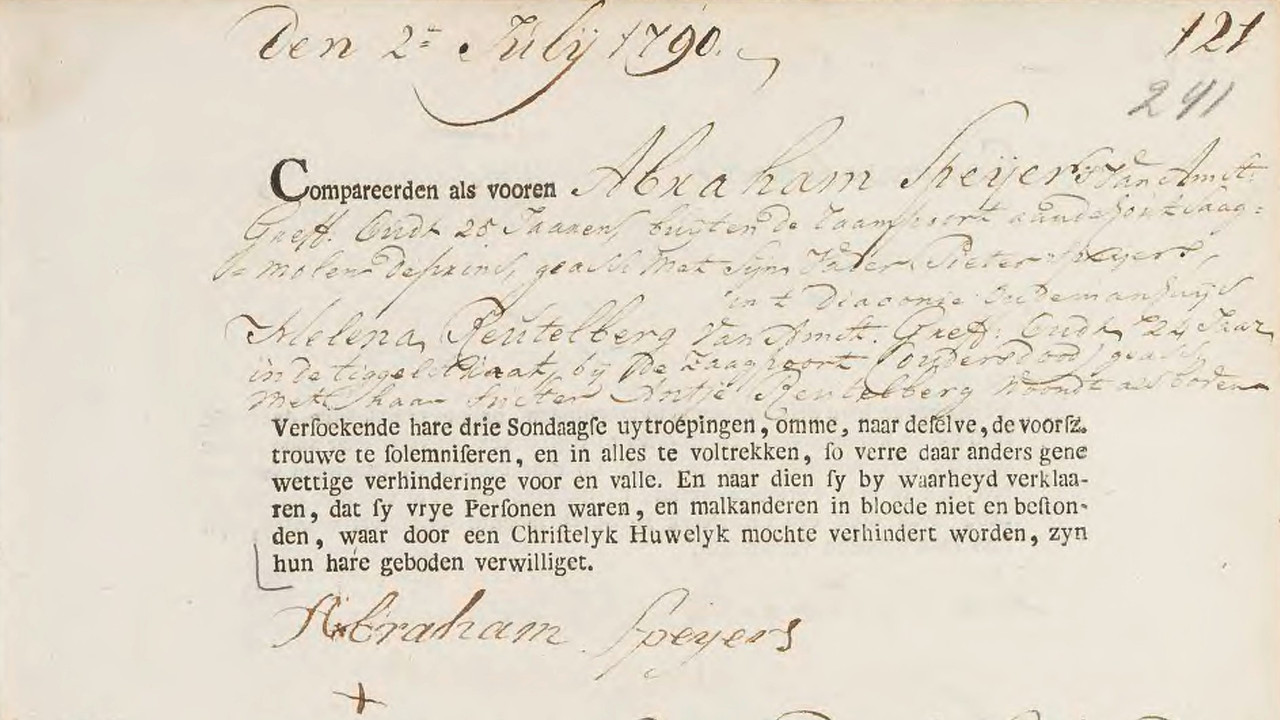 Den 2e July 1790.
121
241
Compareerden als vooren Abraham Speijers van Amst:
Greff. Oudt 25 Jaaren, buijten de Zaampoort aande houtzaag=
molen de prins, geass. met sijn Vader Pieter Speijers,
in t Diaconie Oudemanhuijs
Helena Reutelberg van Amst. Greff: Oudt 24 Jaar
in de tiggelstraat, bij de Zaagpoort, ouders dood, geass.
met haar suster Antje Reutelberg woondt als boven
Verſoekende hare drie Sondaagſe uytroepingen, omme, naar deſelve, de voorſz.
trouwe te ſolemniſeren, en in alles te voltrekken, ſo verre daar anders gene
wettige verhinderinge voor en valle. En naar dien ſy by waarheyd verklaa-
ren, dat ſy vrye Perſonen waren, en malkanderen in bloede niet en beſton-
den, waar door een Chriſtelyk Huwelyk mochte verhindert worden, zyn
hun hare geboden verwilliget.
Abraham Speyers